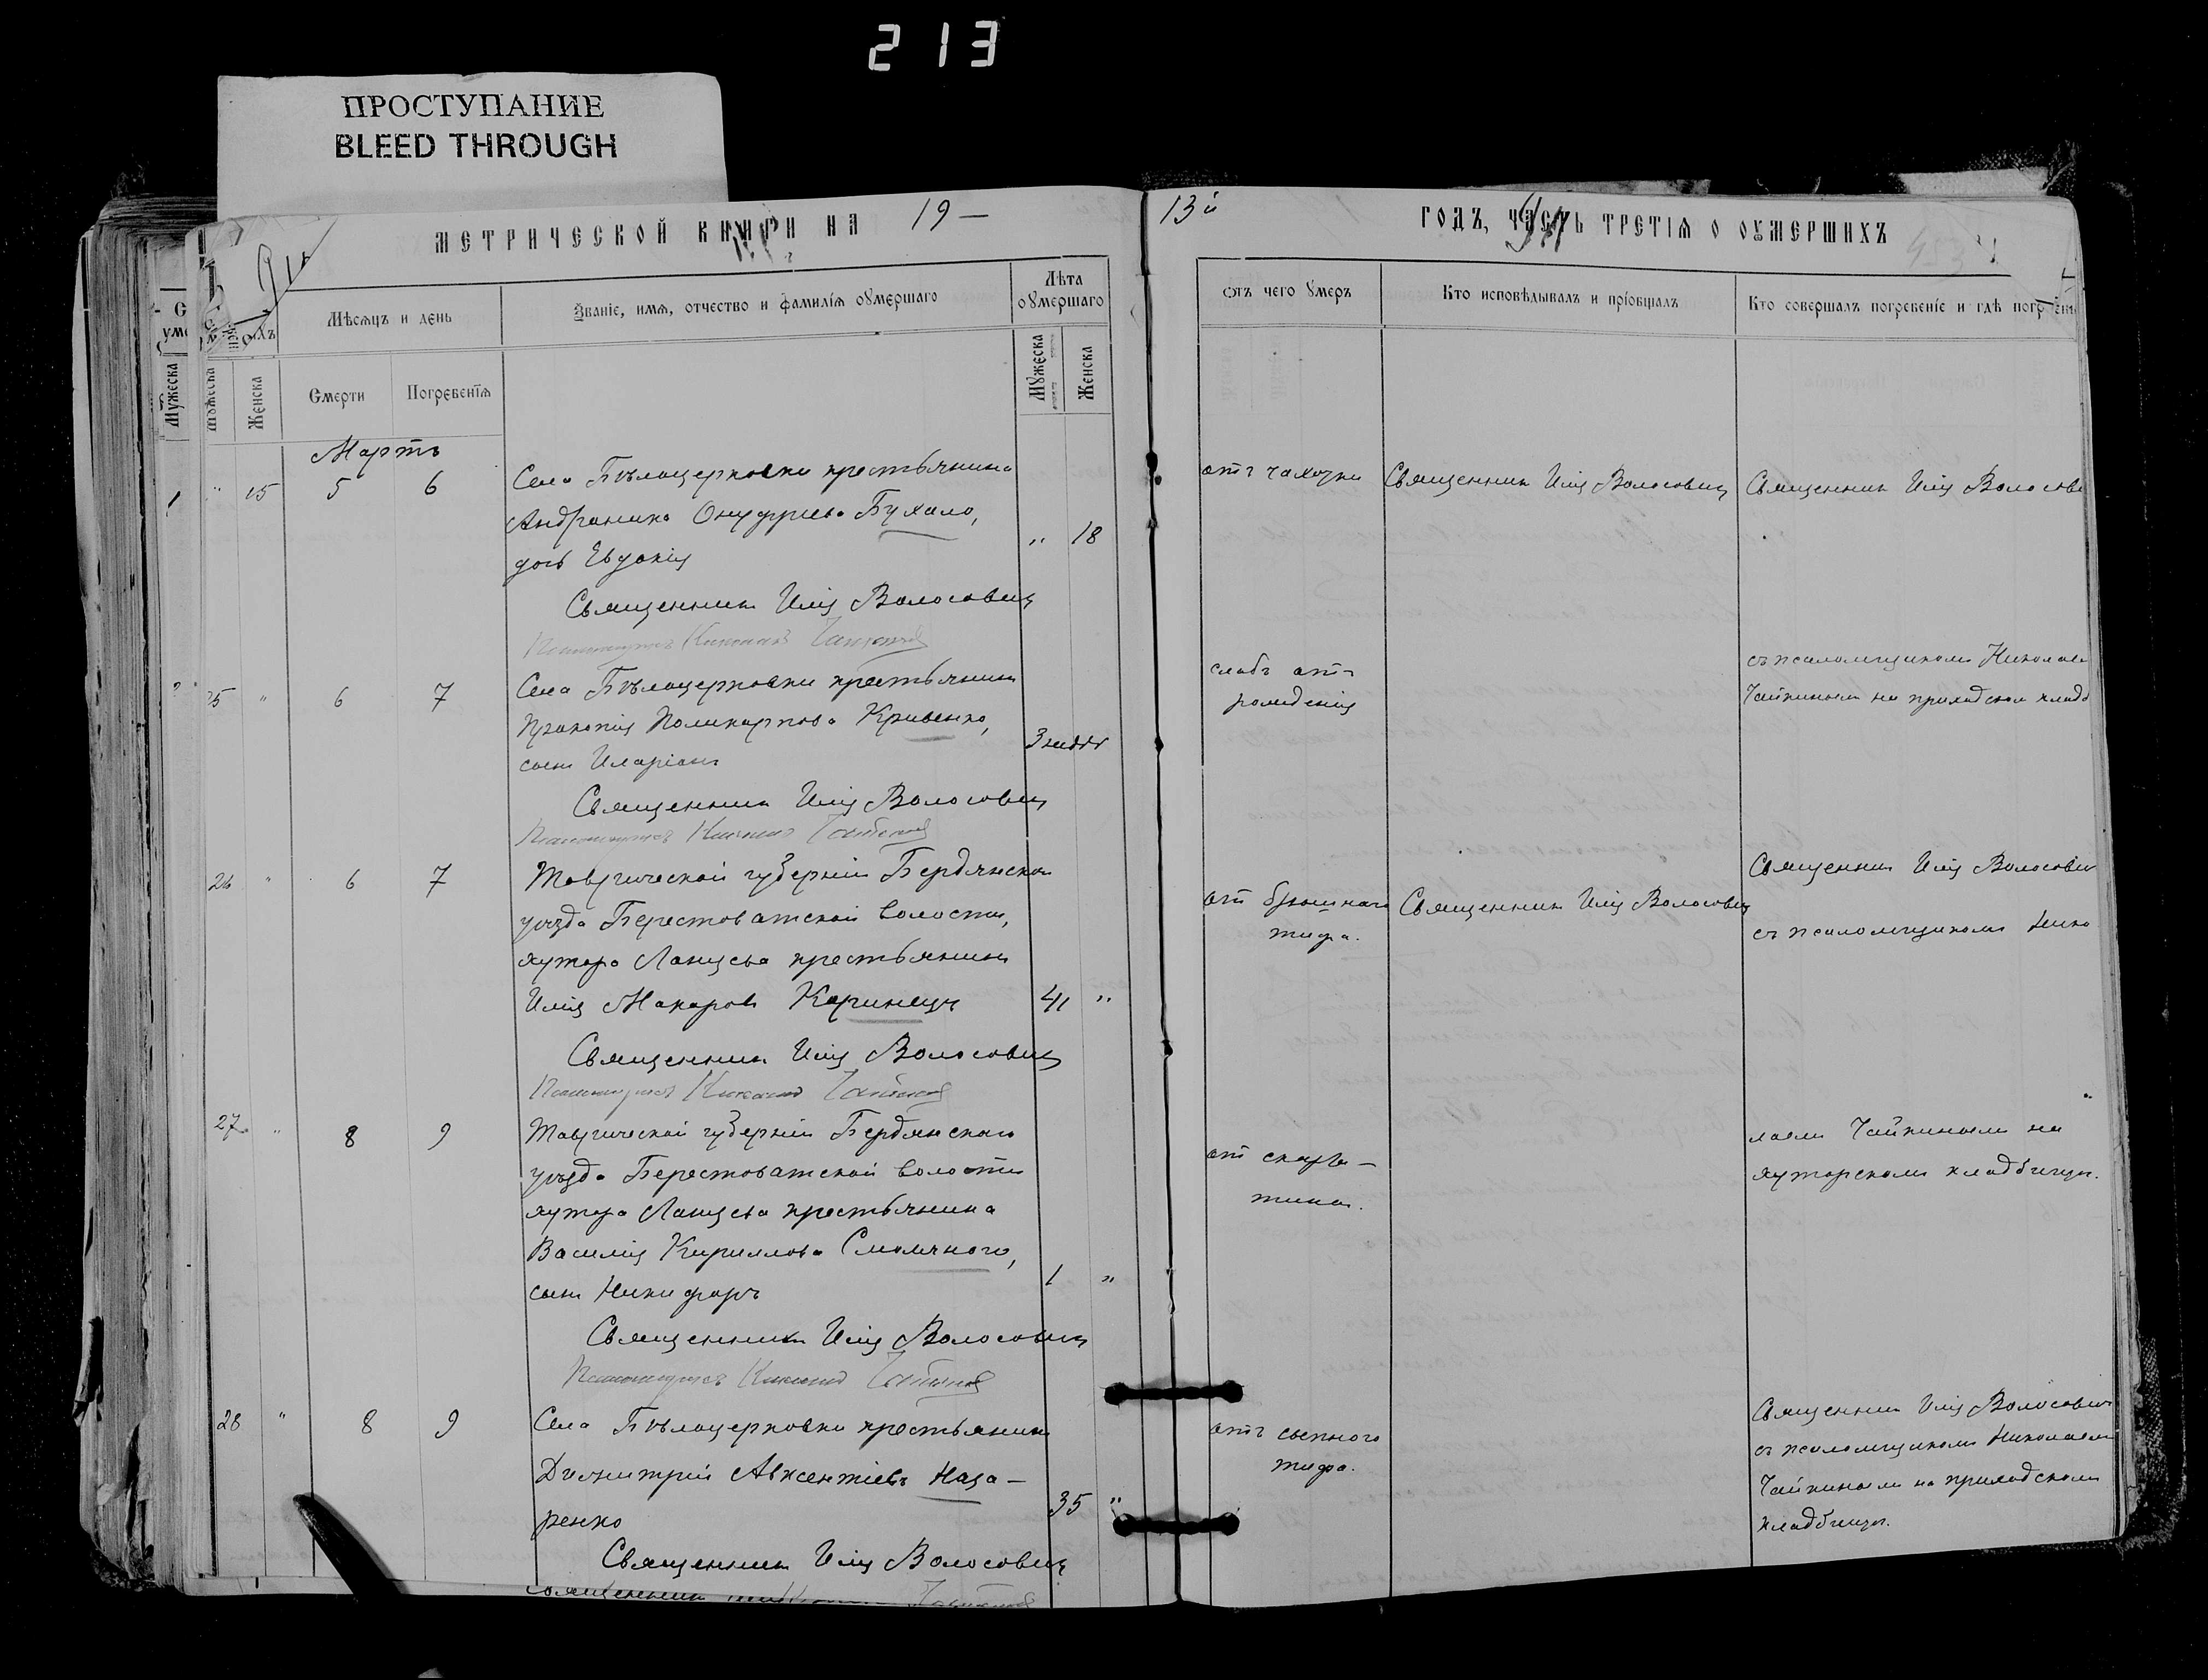 213
ПРОСТУПАНИЕ
BLEED THROUGH
МЕТРИЧЕСКОЙ КНИГИ НА 19—
Мѣсяцъ и день
Званіе, имя, отчество и фамилія оумершаго
Лѣта оумершаго
Мужеска
Женска
Смерти
Погребенія
Мужеска
Женска
Мартъ
15 5 6
Села Бѣлоцерковки крестьянина
Андроника Онуфріева Бухало,
дочь Евдокія
" 18
Священникъ Илія Волосовичъ
Псаломщикъ Николай Чайкинъ
25 " 6 7
Села Бѣлоцерковки крестьянина
Прокопія Поликарпова Кривенко,
сынъ Иларіонъ
Священникъ Илія Волосовичъ
Псаломщикъ Николай Чайкинъ
26 " 6 7
Таврической губерніи Бердянскаго
уѣзда Берестоватской волости,
хутора Ланцева крестьянинъ
Илія Макаровъ Каринецъ
41 "
Священникъ Илія Волосовичъ
Псаломщикъ Николай Чайкинъ
27 " 8 9
Таврической губерніи Бердянскаго
уѣзда Берестоватской волости
хутора Ланцева крестьянина
Василія Кириллова Смолянаго,
сынъ Никифоръ
1 "
Священникъ Илія Волосовичъ
Псаломщикъ Николай Чайкинъ
28 " 8 9
Села Бѣлоцерковки крестьянинъ
Димитрій Авксентіевъ Наза-
ренко
35 "
Священникъ Илія Волосовичъ
13й ГОДЪ, ЧАСТЬ ТРЕТІЯ О ОУМЕРШИХЪ
Отъ чего умеръ
Кто исповѣдывалъ и пріобщалъ
Кто совершалъ погребеніе и гдѣ погребены
отъ чахотки
Священникъ Илія Волосовичъ
Священникъ Илія Волосови
слабъ отъ
рожденія
съ псаломщикомъ Николаем
Чайкинымъ на приходском кладб
отъ брюшнаго
тифа.
Священникъ Илія Волосовичъ
Священникъ Илія Волосович
съ псаломщикомъ Нико
отъ скарла-
тины.
лаемъ Чайкинымъ на
хуторскомъ кладбищѣ.
отъ сыпного
тифа.
Священникъ Илія Волосович
съ псаломщикомъ Николаемъ
Чайкинымъ на приходскомъ
кладбищѣ.